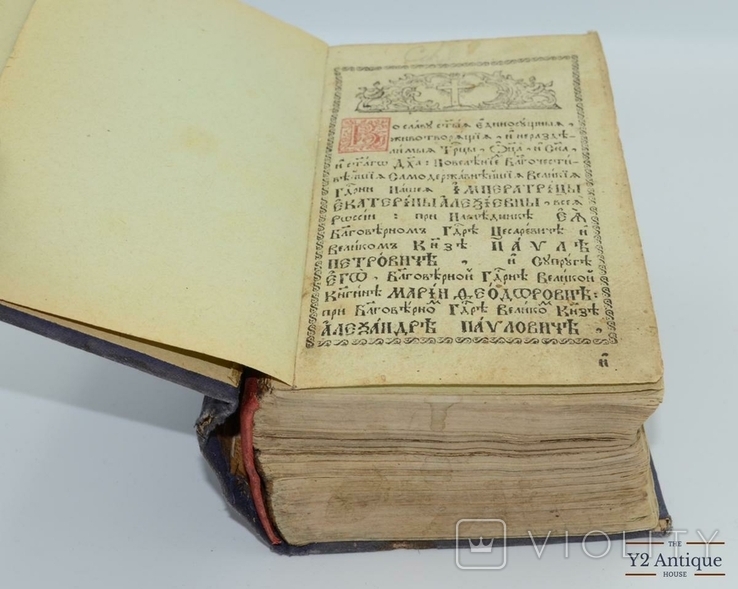 Во славу ст҃ыѧ є҆диносꙋщныѧ,
животворѧщїѧ, и҆ нераздѣ-
лимыѧ Трⷪ҇цы, Ѻ҆ц҃а, и҆ Сн҃а,
и҆ ст҃агѡ Дх҃а: Повелѣнїемъ Бл҃гочести-
вѣйшїѧ Самодержавнѣйшїѧ Великїѧ
Гдⷭ҇рни Нашеѧ І҆МПЕРАТРИЦЫ
Є҆КАТЕРІНЫ АЛЕѮІЕВНЫ, всеѧ
Рѡссїи: при Наслѣдникѣ Є҆Ѧ҆
Бл҃говѣрномъ Гдⷭ҇рѣ Цесаревичѣ и҆
великомъ Кн҃зѣ ПАѴЛѢ
ПЕТРОВИЧѢ, и҆ Сꙋпрꙋгѣ
Є҆ГѠ̀, Бл҃говѣрной Гдⷭ҇рнѣ Великой
Кн҃гинѣ МАРІИ ѲЕОДѠРОВНѢ:
при Бл҃говѣрномъ Гдⷭ҇рѣ Великомъ Кн҃зѣ
АЛЕѮАНДРѢ ПАѴЛОВИЧѢ,
VIOLITY
THE
Y2 Antique
HOUSE